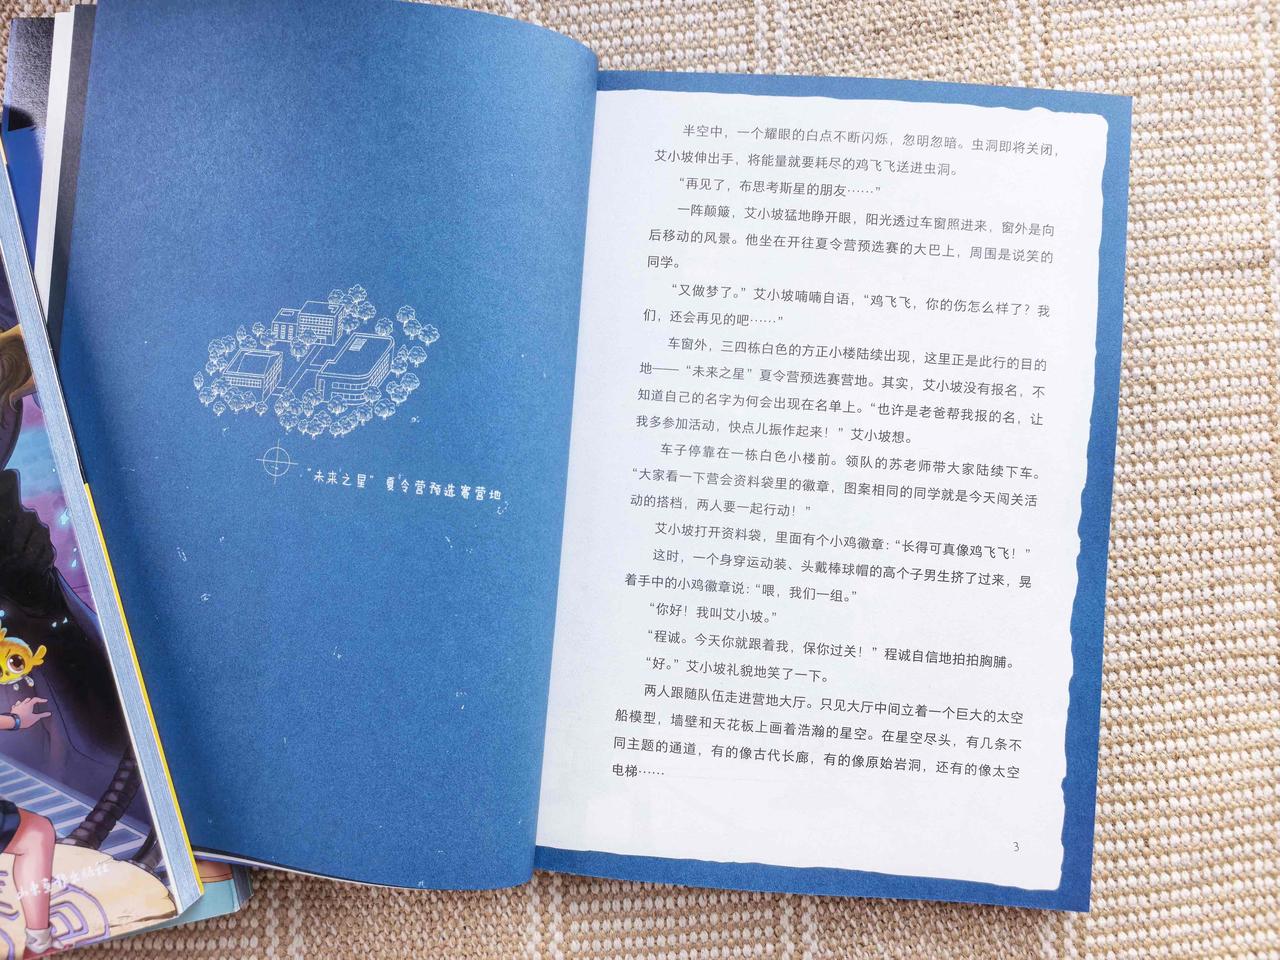 “未来之星”夏令营预选赛营地
半空中，一个耀眼的白点不断闪烁，忽明忽暗。虫洞即将关闭，
艾小坡伸出手，将能量就要耗尽的鸡飞飞送进虫洞。
“再见了，布思考斯星的朋友……”
一阵颠簸，艾小坡猛地睁开眼，阳光透过车窗照进来，窗外是向
后移动的风景。他坐在开往夏令营预选赛的大巴上，周围是说笑的
同学。
“又做梦了。”艾小坡喃喃自语，“鸡飞飞，你的伤怎么样了？我
们，还会再见的吧……”
车窗外，三四栋白色的方正小楼陆续出现，这里正是此行的目的
地——“未来之星”夏令营预选赛营地。其实，艾小坡没有报名，不
知道自己的名字为何会出现在名单上。“也许是老爸帮我报的名，让
我多参加活动，快点儿振作起来！”艾小坡想。
车子停靠在一栋白色小楼前。领队的苏老师带大家陆续下车。
“大家看一下营会资料袋里的徽章，图案相同的同学就是今天闯关活
动的搭档，两人要一起行动！”
艾小坡打开资料袋，里面有个小鸡徽章：“长得可真像鸡飞飞！”
这时，一个身穿运动装、头戴棒球帽的高个子男生挤了过来，晃
着手中的小鸡徽章说：“喂，我们一组。”
“你好！我叫艾小坡。”
“程诚。今天你就跟着我，保你过关！”程诚自信地拍拍胸脯。
“好。”艾小坡礼貌地笑了一下。
两人跟随队伍走进营地大厅。只见大厅中间立着一个巨大的太空
船模型，墙壁和天花板上画着浩瀚的星空。在星空尽头，有几条不
同主题的通道，有的像古代长廊，有的像原始岩洞，还有的像太空
电梯……
3